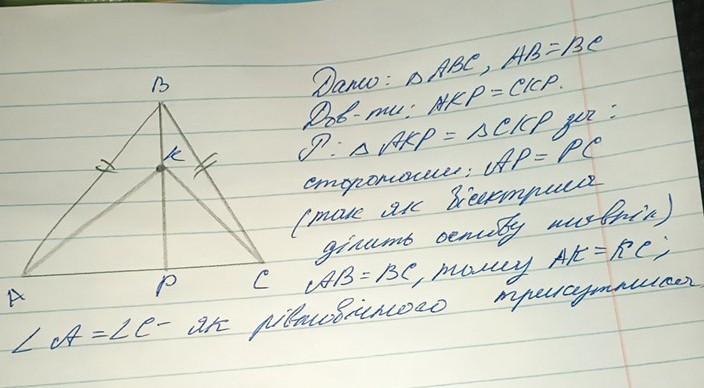 Дано: △ABC, AB=BC
Дов-ти: AKP=CKP.
Р: △AKP=△CKP за:
сторонами: AP=PC
(так як бісектриса
ділить основу навпіл)
AB=BC, тому AK=KC;
∠A=∠C- як рівнобічного трикутника
B
K
A
P
C